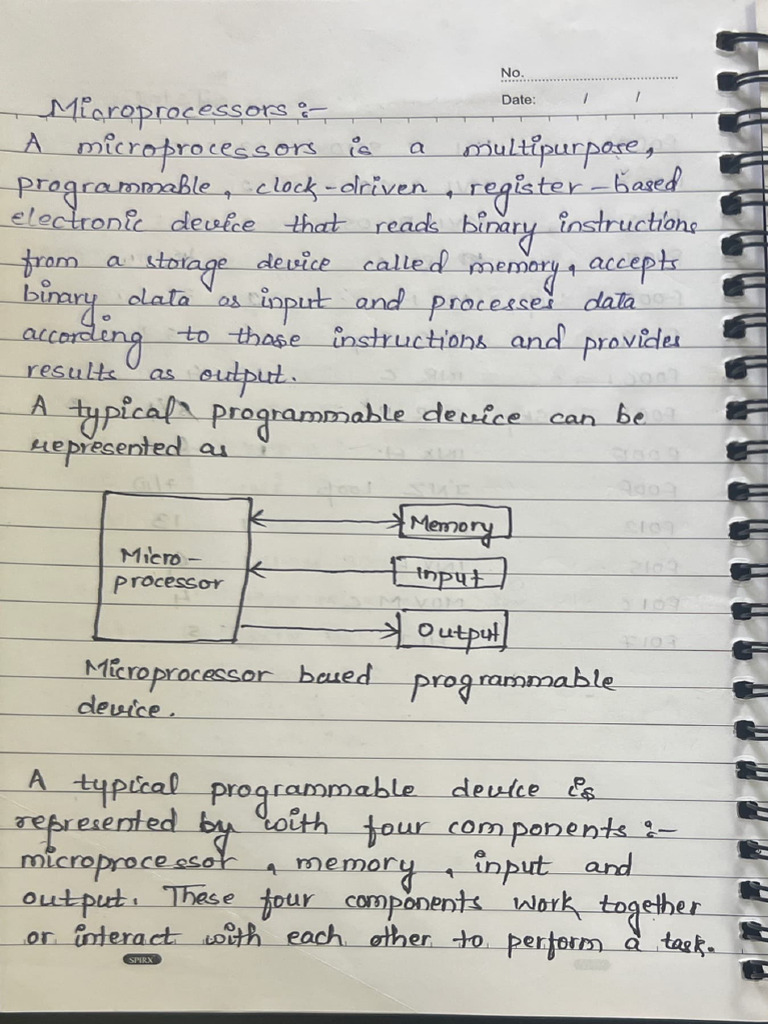 No.
Date: / /
Microprocessors :-
A microprocessors is a multipurpose,
programmable, clock-driven, register-based
electronic device that reads binary instructions
from a storage device called memory, accepts
binary data as input and processes data
according to those instructions and provides
results as output.
A typical programmable device can be
represented as
Memory
Micro-
processor
input
Output
Microprocessor based programmable
device.
A typical programmable device is
represented by with four components :-
microprocessor, memory, input and
output. These four components work together
or interact with each other to perform a task.
SPIRX